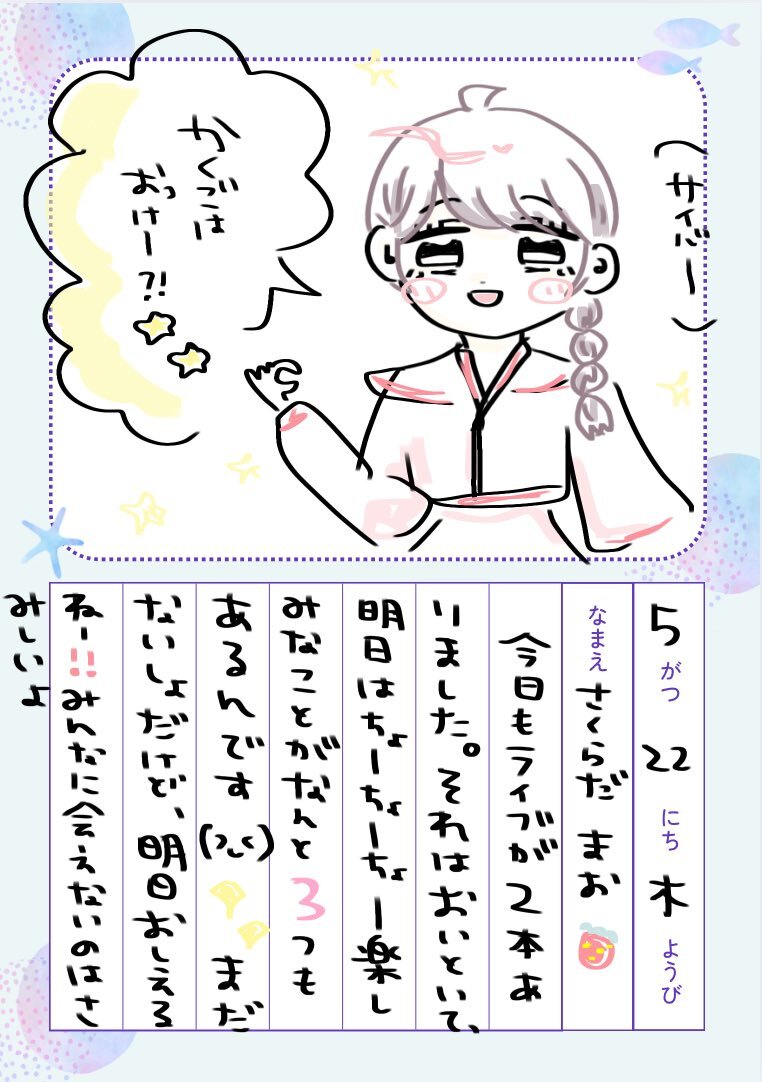 かくごは
おっけー?!
(サイバー)
5がつ22にち木ようび
なまえ さくらだ まお
今日もライブが2本あ
りました。それはおいといて、
明日はちょーちょーちょー楽し
みなことがなんと3つも
あるんです まだ
ないしょだけど、明日おしえる
ねー!!みんなに会えないのはさ
みしいよ